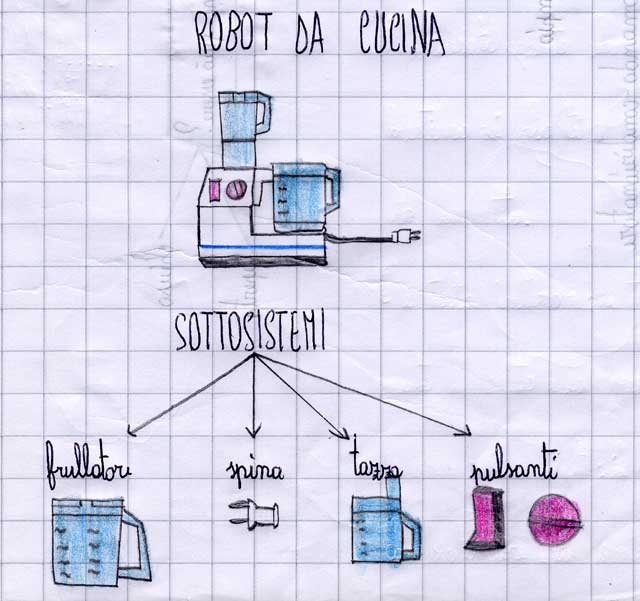 ROBOT DA CUCINA
SOTTOSISTEMI
frullatore spina tazza pulsanti